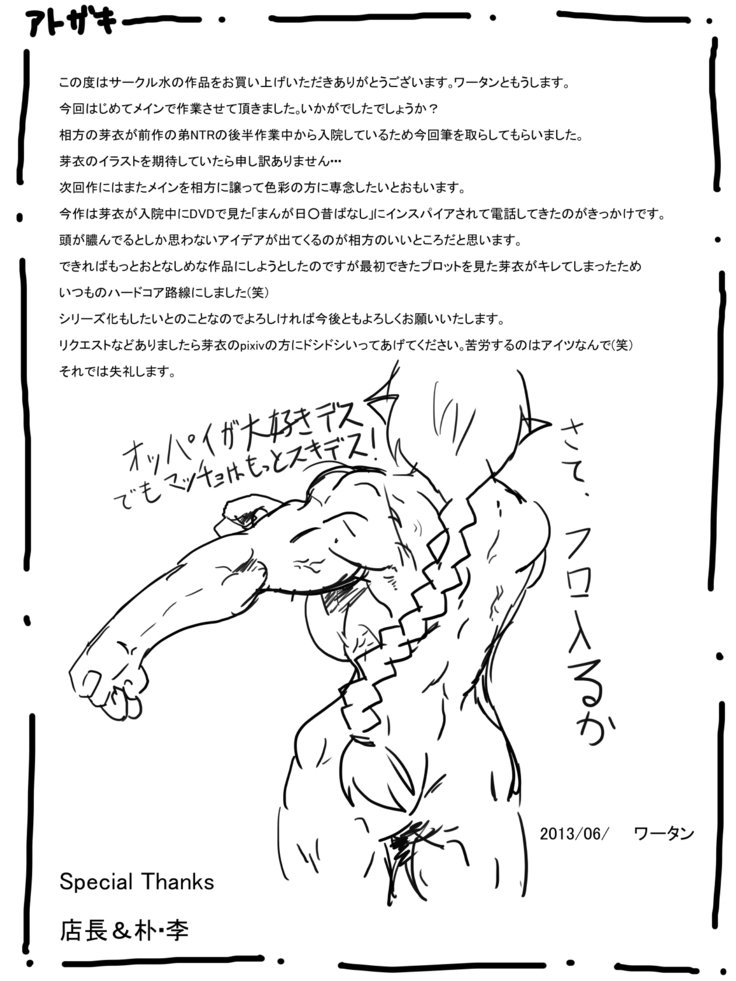 アトガキ
この度はサークル水の作品をお買い上げいただきありがとうございます。ワータンともうします。
今回はじめてメインで作業させて頂きました。いかがでしたでしょうか？
相方の芽衣が前作の弟NTRの後半作業中から入院しているため今回筆を取らしてもらいました。
芽衣のイラストを期待していたら申し訳ありません…
次回作にはまたメインを相方に譲って色彩の方に専念したいとおもいます。
今作は芽衣が入院中にDVDで見た「まんが日〇昔ばなし」にインスパイアされて電話してきたのがきっかけです。
頭が膿んでるとしか思わないアイデアが出てくるのが相方のいいところだと思います。
できればもっとおとなしめな作品にしようとしたのですが最初できたプロットを見た芽衣がキレてしまったため
いつものハードコア路線にしました(笑)
シリーズ化もしたいとのことなのでよろしければ今後ともよろしくお願いいたします。
リクエストなどありましたら芽衣のpixivの方にドシドシいってあげてください。苦労するのはアイツなんで(笑)
それでは失礼します。
オッパイが大好きデス
でもマッチョはもっとスキデス！
さて、フロ入るか
2013/06/ ワータン
Special Thanks
店長＆朴・李